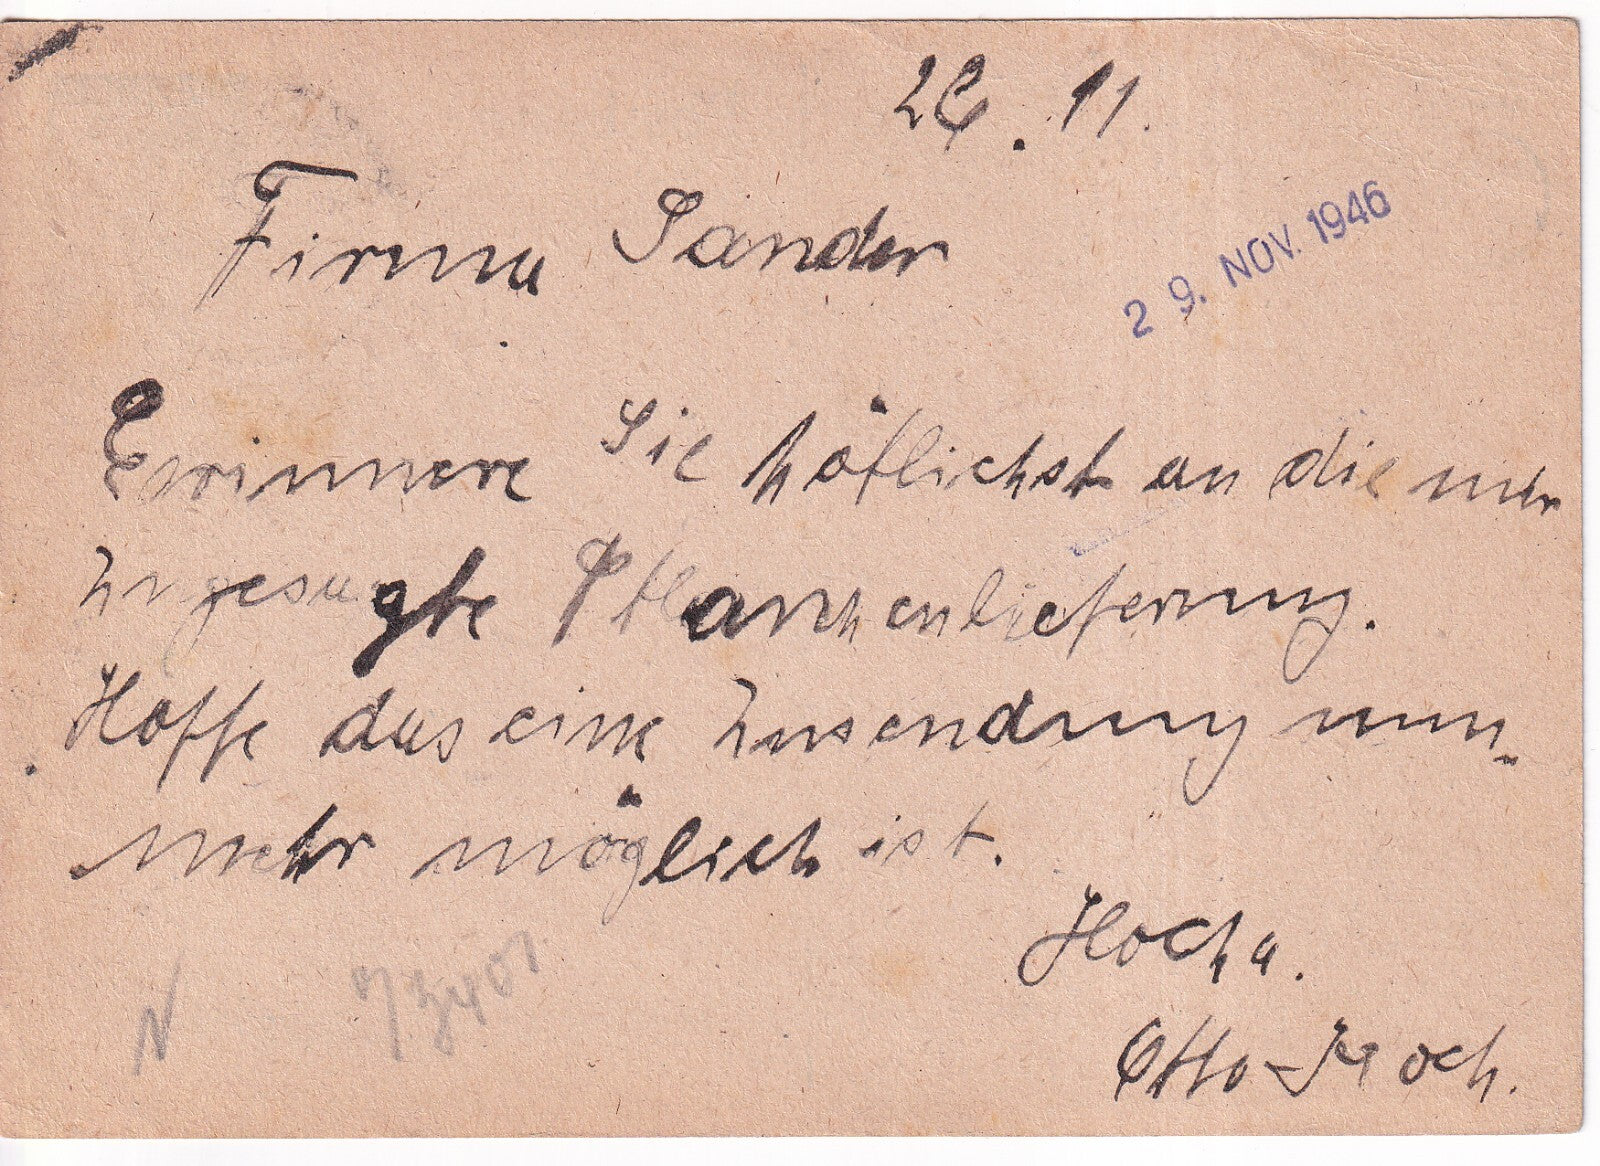 26. 11.
Firma Sander
29. NOV. 1946
Erinnere Sie höflichst an die mir
zugesagte Pflanzenlieferung.
Hoffe das eine Zusendung nun-
mehr möglich ist.
Hocha.
Otto Koch.
N